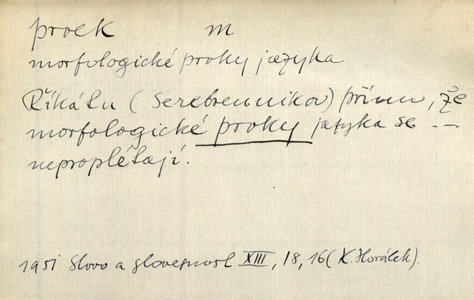 prvek m
morfologické prvky jazyka
Říká-li (Serebrennikov) přímo, že
morfologické prvky jazyka se --
neproplétají.
1951 Slovo a slovesnost XIII, 18, 16 (K. Horálek).